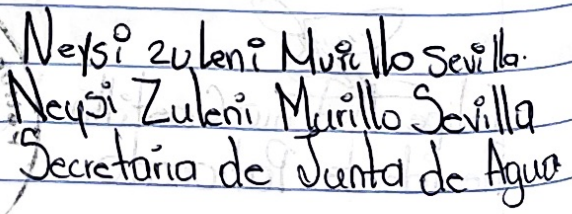 Neysi zuleni Murillo Sevilla.
Neysi Zuleni Murillo Sevilla
Secretaria de Junta de Agua